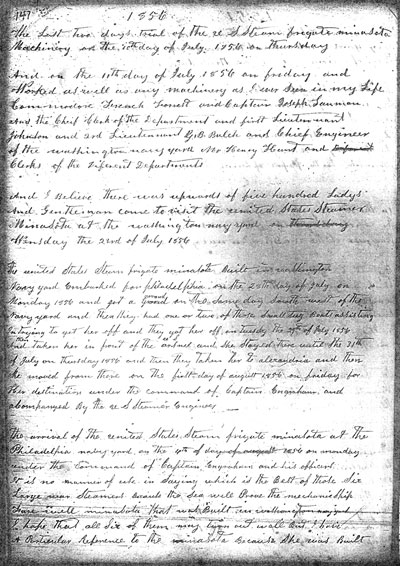 147
1856
the last two days trial of the U S Steam frigate minasota
Machinery on the 10th day of July 1856 on Thursday
And on the 11th day of July 1856 on friday and
Worked as well as any machinery as I ever seen in my Life
Commodore French Forrest and Captain Joseph Lanman
And the Chief Clerk of the Department and first Lieutennant
Johnston and 2rd Lieutenant G B Balch and Chief Engineer
of the washington navy yard Mr Henry Hunt and
Clerks of the Diferent Departments
And I Believe there was upwards of five hundred Ladys
And Gentleman come to visit the united States Steamer
Minasota at the washington navy yard on
Wensday the 23rd of July 1856
the united States Steam frigate minasota Built in washington
Navy yard Embarked for philadelphia on the 28th day of July on
Monday 1856 and got a ground on the same day South west of the
Navy yard and then they had one or two of those Small day Boats assisting
in tugging to get her off and they got her off on Tuesday the 29th of July 1856
and then taken her in front of the arsenal and she stayed there until the 31th
of July on thursday 1856 and then they taken her to alexandria and then
She moved from there on the first day of august 1856 on friday for
Her destination under the command of Captain Engraham and
accompanyed By the U S Steamer Engineer
The arrival of the united States Steam frigate minasota at the
Philadelpia navy yard on the 4th of august 1856 on monday
under the Command of Captain Engraham and his officers
it is no manner of use in Saying which is the Best of those Six
Large war Steamers Because the Sea will Prove the mechanicship
Fare well minasota that was Built in washington navy yard
I hope that all Six of them may turn out well But I have
A Particular Reference to the minasota Because She was Built